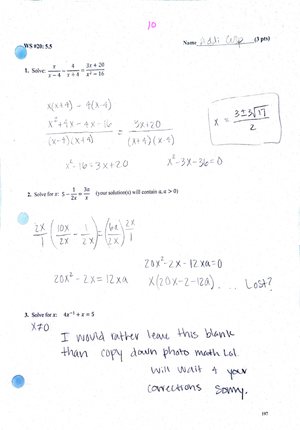 10
WS #20: 5.5
Name Addi Culp (3 pts)
1. Solve: x/(x-4) - 4/(x+4) = (3x+20)/(x²-16)
x(x+4) - 4(x-4)
(x²+4x-4x-16)/((x-4)(x+4)) = (3x+20)/((x+4)(x-4))
x = (3±3√17)/2
x²-16=3x+20 x²-3x-36=0
2. Solve for x: 5 - 1/(2x) = 3a/x (your solution(s) will contain a, a > 0)
2x/1 (10x/2x - 1/2x) = (6a/2x) 2x/1
20x²-2x-12xa=0
20x²-2x=12xa x(20x-2-12a)... Lost?
3. Solve for x: 4x⁻¹ + x = 5
x≠0
I would rather leave this blank
than copy down photo math Lol.
will wait 4 your
corrections sorry.
197